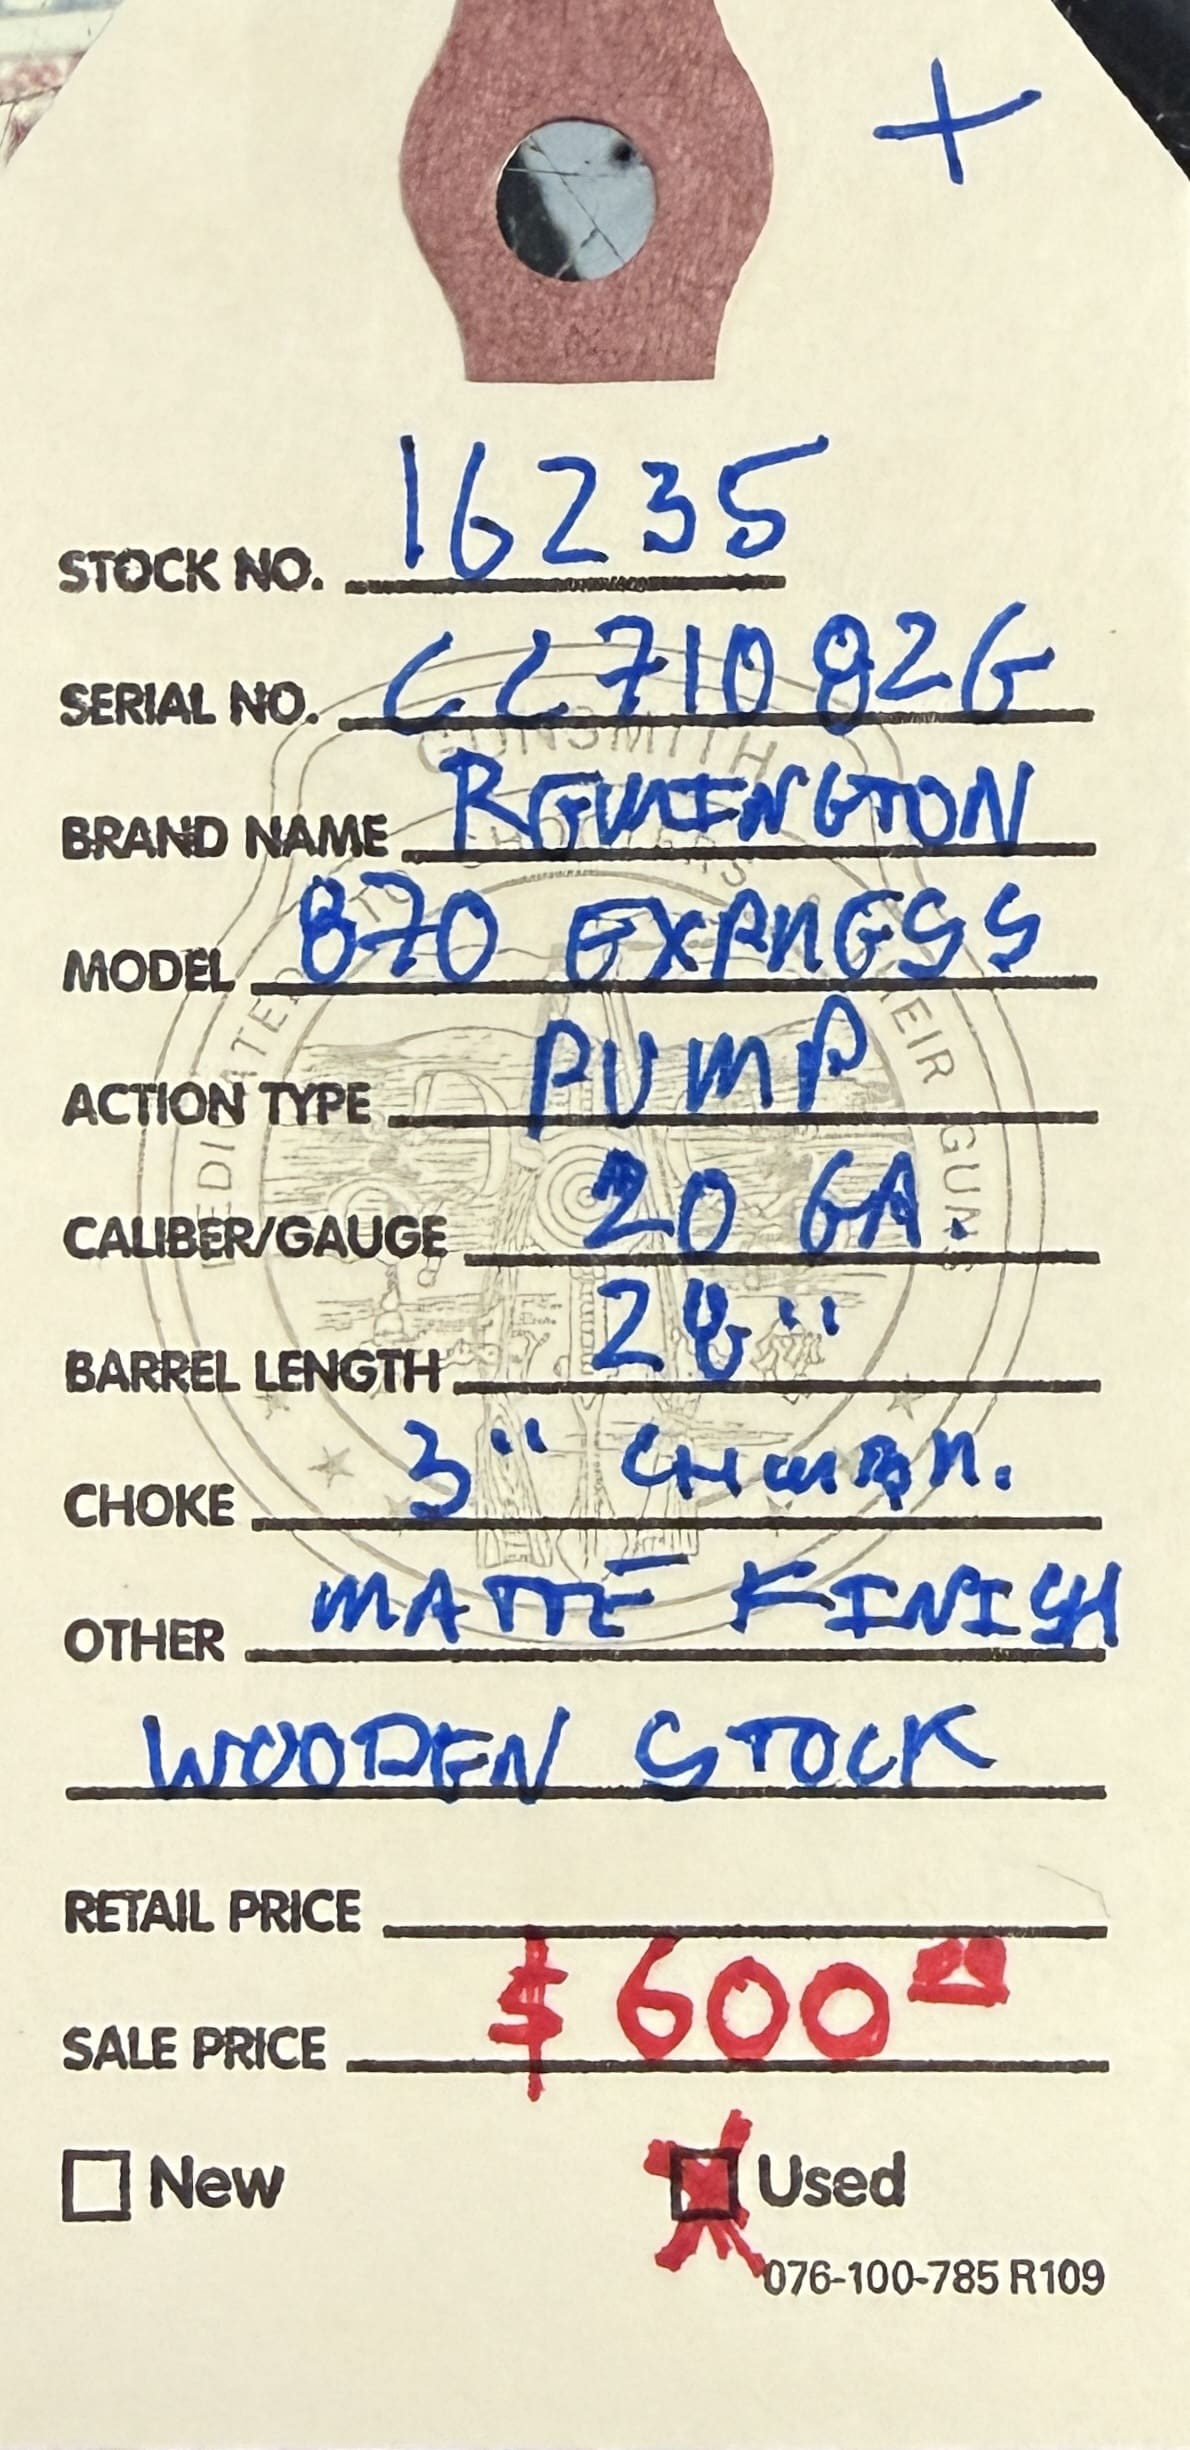 +
STOCK NO. 16235
SERIAL NO. CC71082G
BRAND NAME REMINGTON
MODEL 870 EXPRESS
ACTION TYPE PUMP
CALIBER/GAUGE 20 GA.
BARREL LENGTH 28"
CHOKE 3" CHMBR.
OTHER MATTE FINISH
WOODEN STOCK
RETAIL PRICE
SALE PRICE $600
New Used
076-100-785 R109